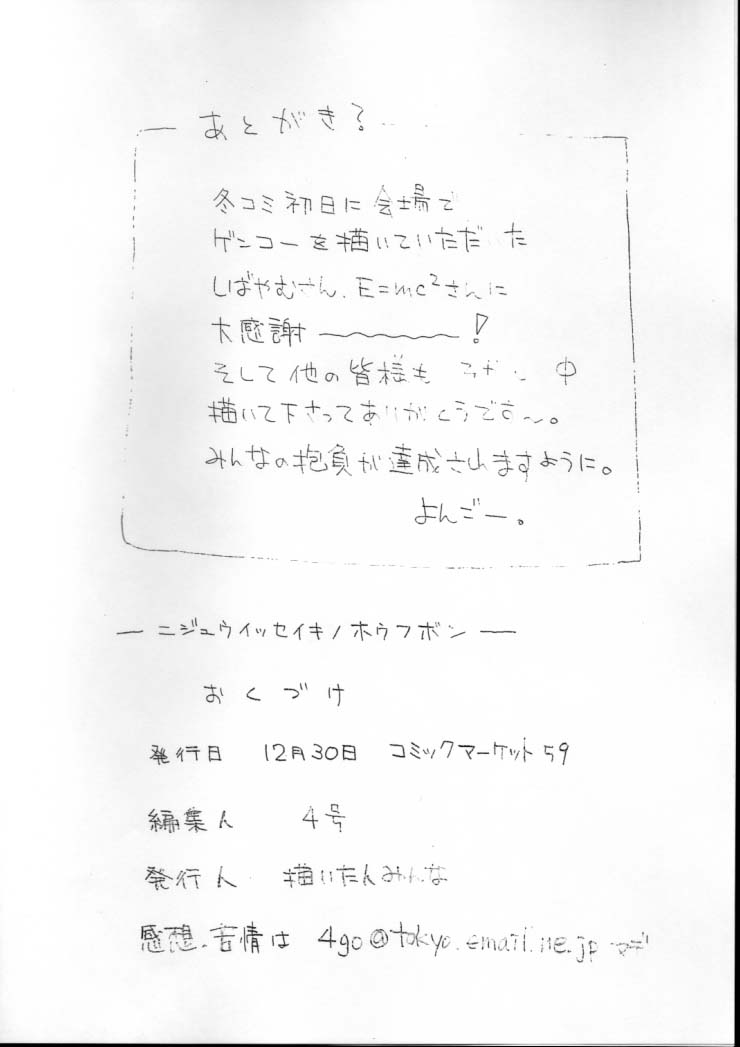 あとがき?
冬コミ初日に会場で
ゲンコーを描いていただいた
しばやむさん、E=mc²さんに
大感謝〜!
そして他の皆様も 中
描いて下さってありがとうです〜。
みんなの抱負が達成されますように。
よんごー。
ーニジュウイッセイキノホウフボンー
おくづけ
発行日 12月30日 コミックマーケット59
編集人 4号
発行人 描いたんみんな
感想、苦情は 4go@tokyo.email.ne.jp マデ